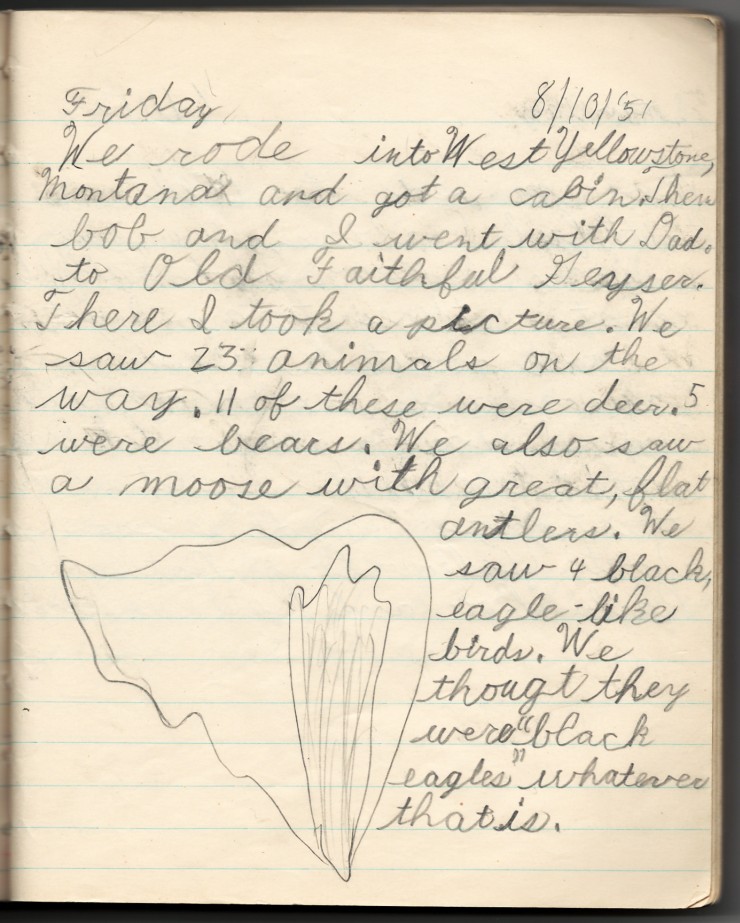 Friday 8/10/51
We rode into West Yellowstone,
Montana and got a cabin. Then
bob and I went with Dad.
to Old Faithful Geyser.
There I took a picture. We
saw 23 animals on the
way. 11 of these were deer. 5
were bears. We also saw
a moose with great, flat
antlers. We
saw 4 black,
eagle-like
birds. We
thougt they
were "black
eagles" whatever
that is.